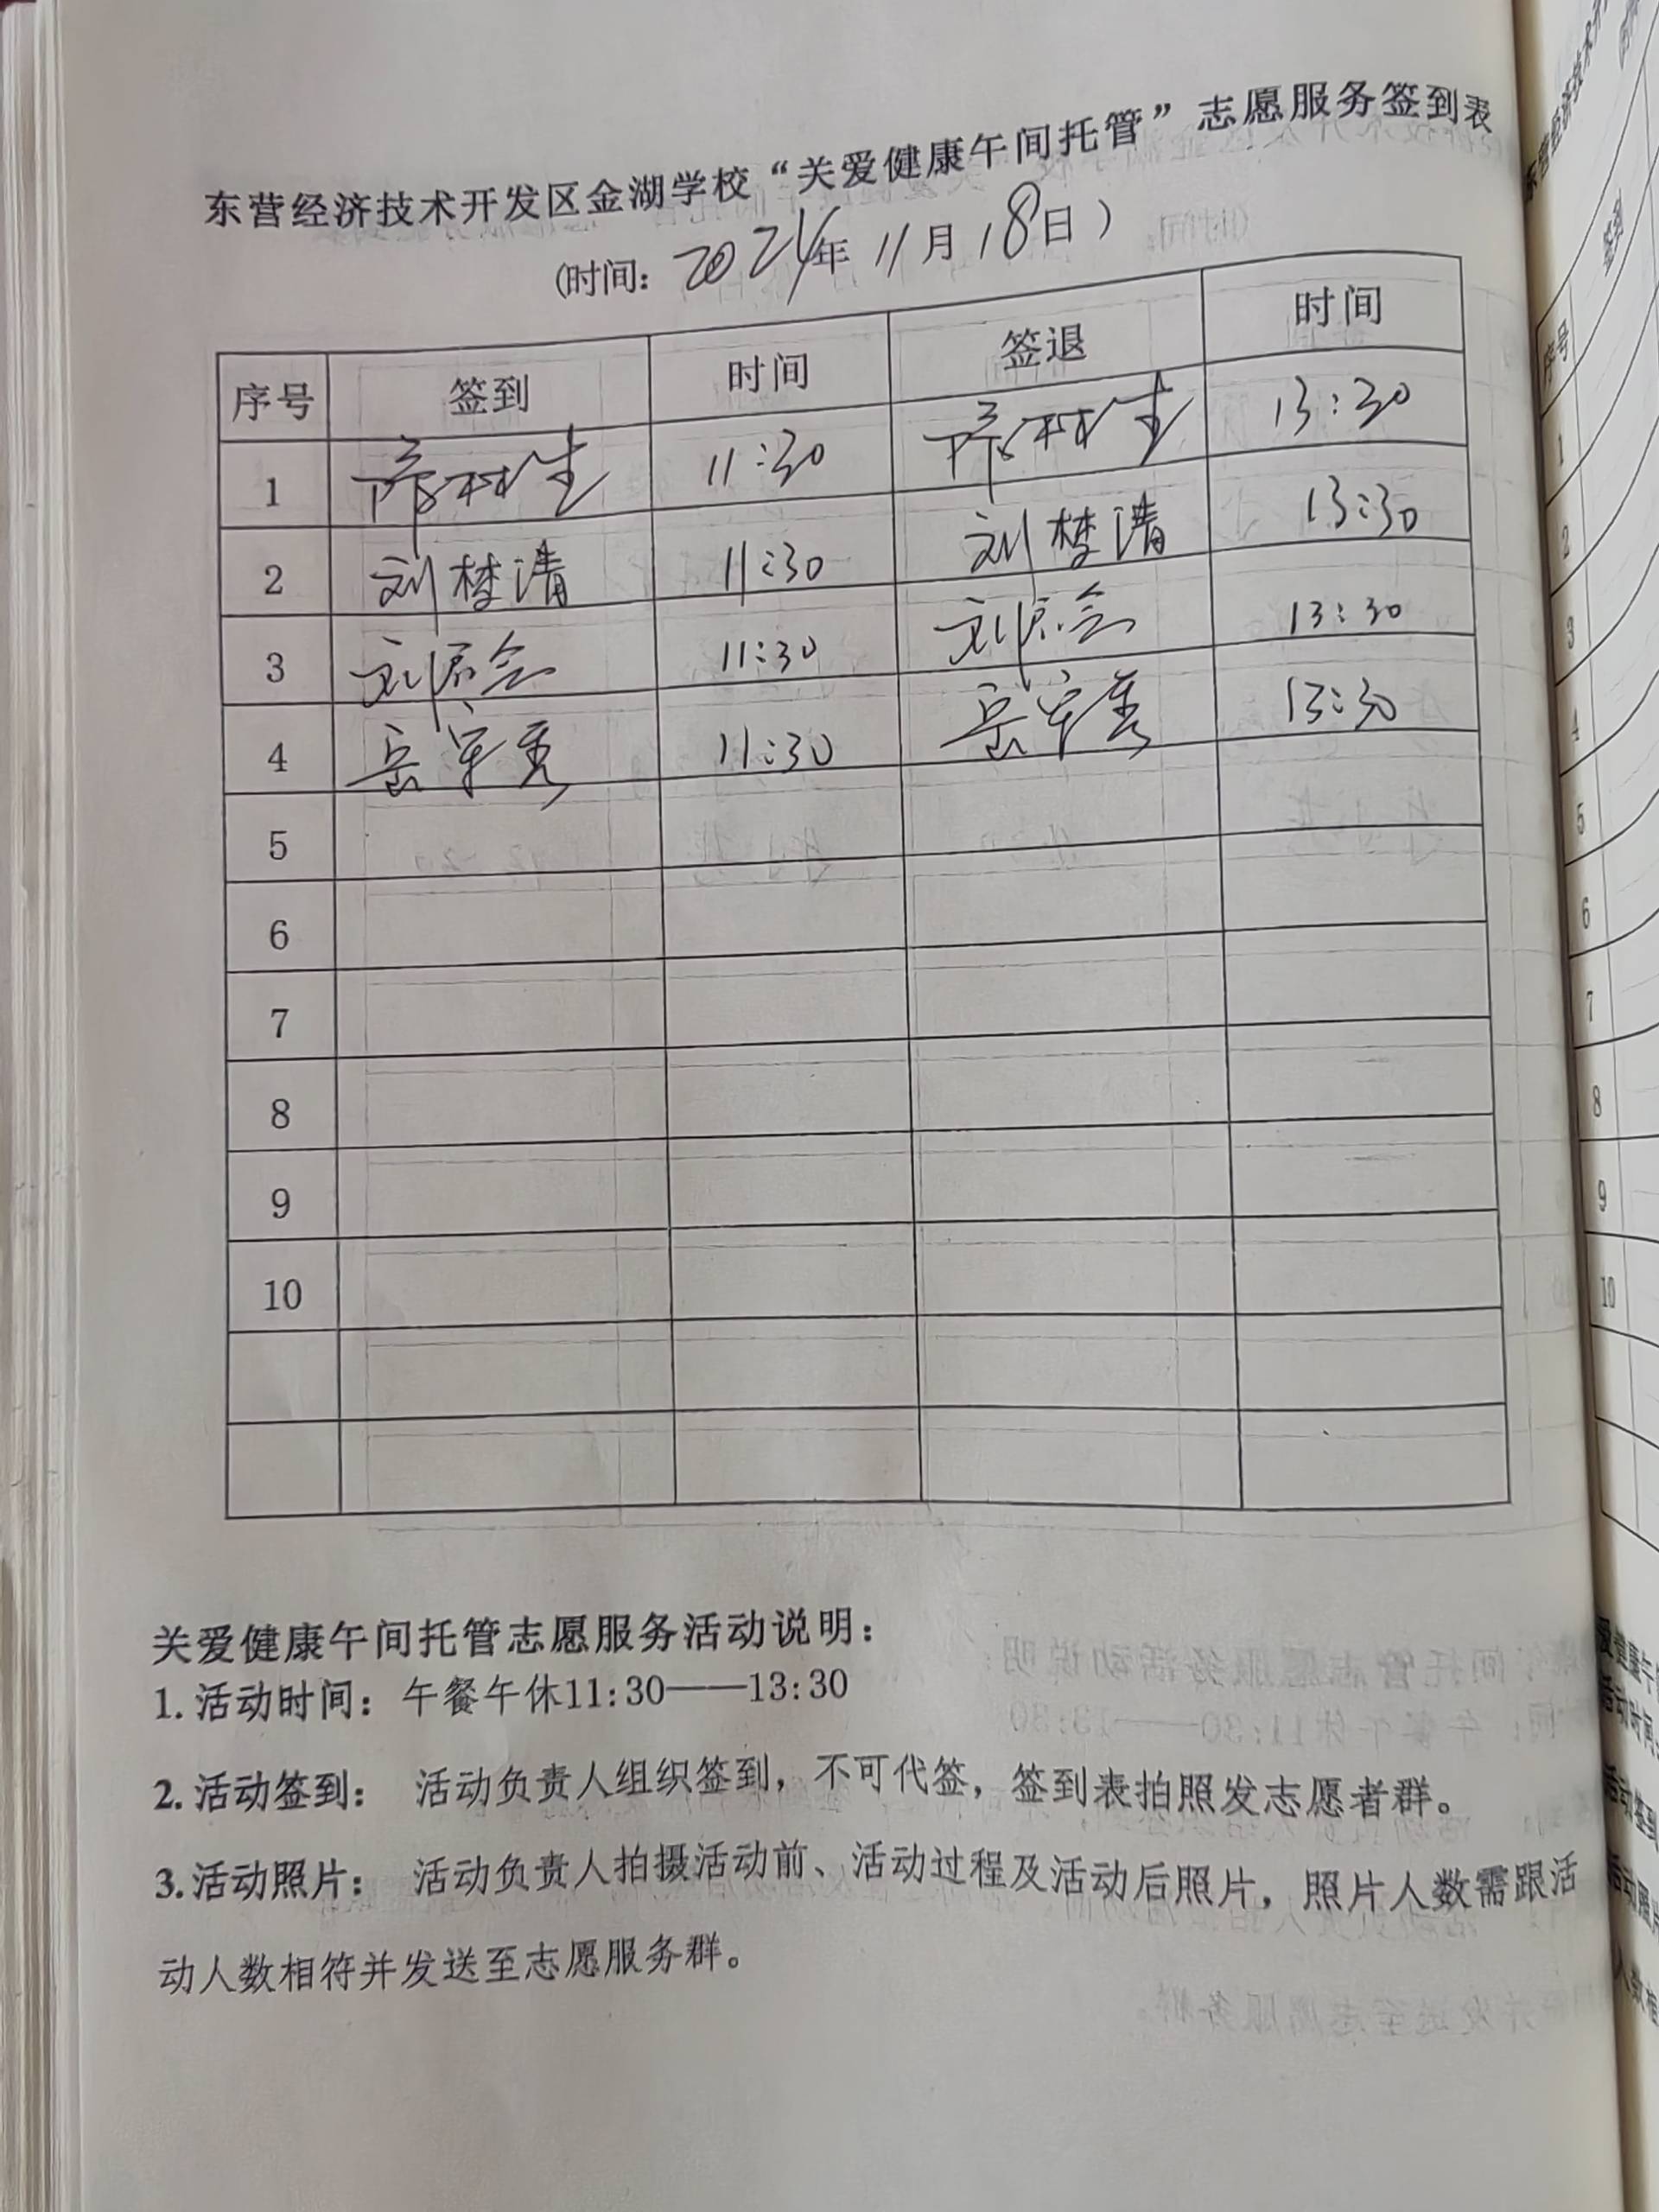 东营经济技术开发区金湖学校“关爱健康午间托管”志愿服务签到表
(时间：2024年11月18日）
序号 签到 时间 签退 时间
1 11:30 13:30
2 刘梦清 11:30 刘梦清 13:30
3 11:30 13:30
4 岳军秀 11:30 岳军秀 13:30
5
6
7
8
9
10
关爱健康午间托管志愿服务活动说明：
1.活动时间：午餐午休11:30——13:30
2.活动签到： 活动负责人组织签到，不可代签，签到表拍照发志愿者群。
3.活动照片： 活动负责人拍摄活动前、活动过程及活动后照片，照片人数需跟活
动人数相符并发送至志愿服务群。
签到
序号
1
2
3
4
5
6
7
8
9
10